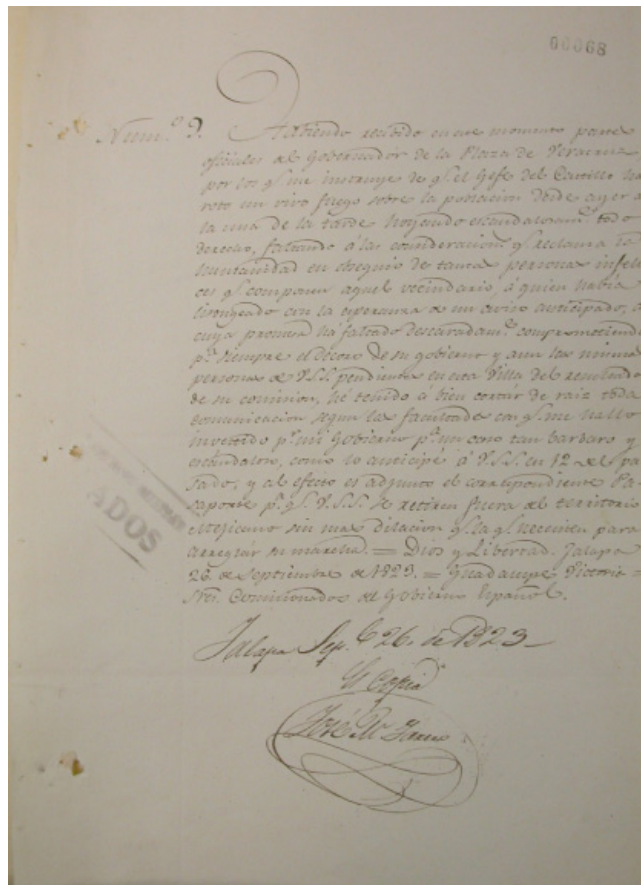 00068
Num.º 9. Habiendo recibido en este momento partes
oficiales del Gobernador de la Plaza de Veracruz
por los q.e me instruye de q.e el Gefe del Castillo ha
roto un vivo fuego sobre la poblacion desde ayer á
la una de la tarde hoyando escandalosam.te todo
derecho, faltando á las consideracion.s q.e reclama la
humanidad en obsequio de tantas personas infeli
ces q.e componen aquel vecindario, á quien habia
lisongeado con la esperanza de un aviso anticipado, á
cuya promesa há faltado descaradam.te comprometiendo
p.a siempre el decoro de su gobierno y aun las mismas
personas de V.S.S. pendientes en esta Villa del resultado
de su comision, he tenido á bien cortar de raiz toda
comunicacion segun las facultades con q.e me hallo
investido p.r mi Gobierno p.a un caso tan barbaro y
escandaloso, como lo anticipé á V.S.S. en 12 del pa
sado, y al efecto es adjunto el correspondiente Pa
saporte p.a q.e V.S.S. se retiren fuera del territorio
Mejicano sin mas dilacion q.e la q.e necesiten para
arreglar su marcha. = Dios y Libertad. Jalapa
26 de Septiembre de 1823. = Guadalupe Victoria =
Sres. Comisionados del Gobierno Español.
ADOS
Jalapa Sep.e 26. de 1823_
Es Copia
José M.